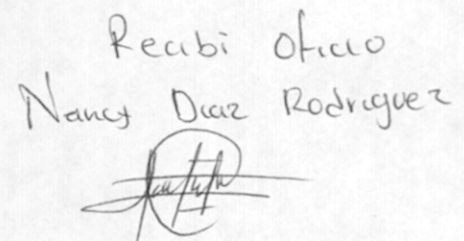 Recibi Oficio
Nancy Diaz Rodriguez